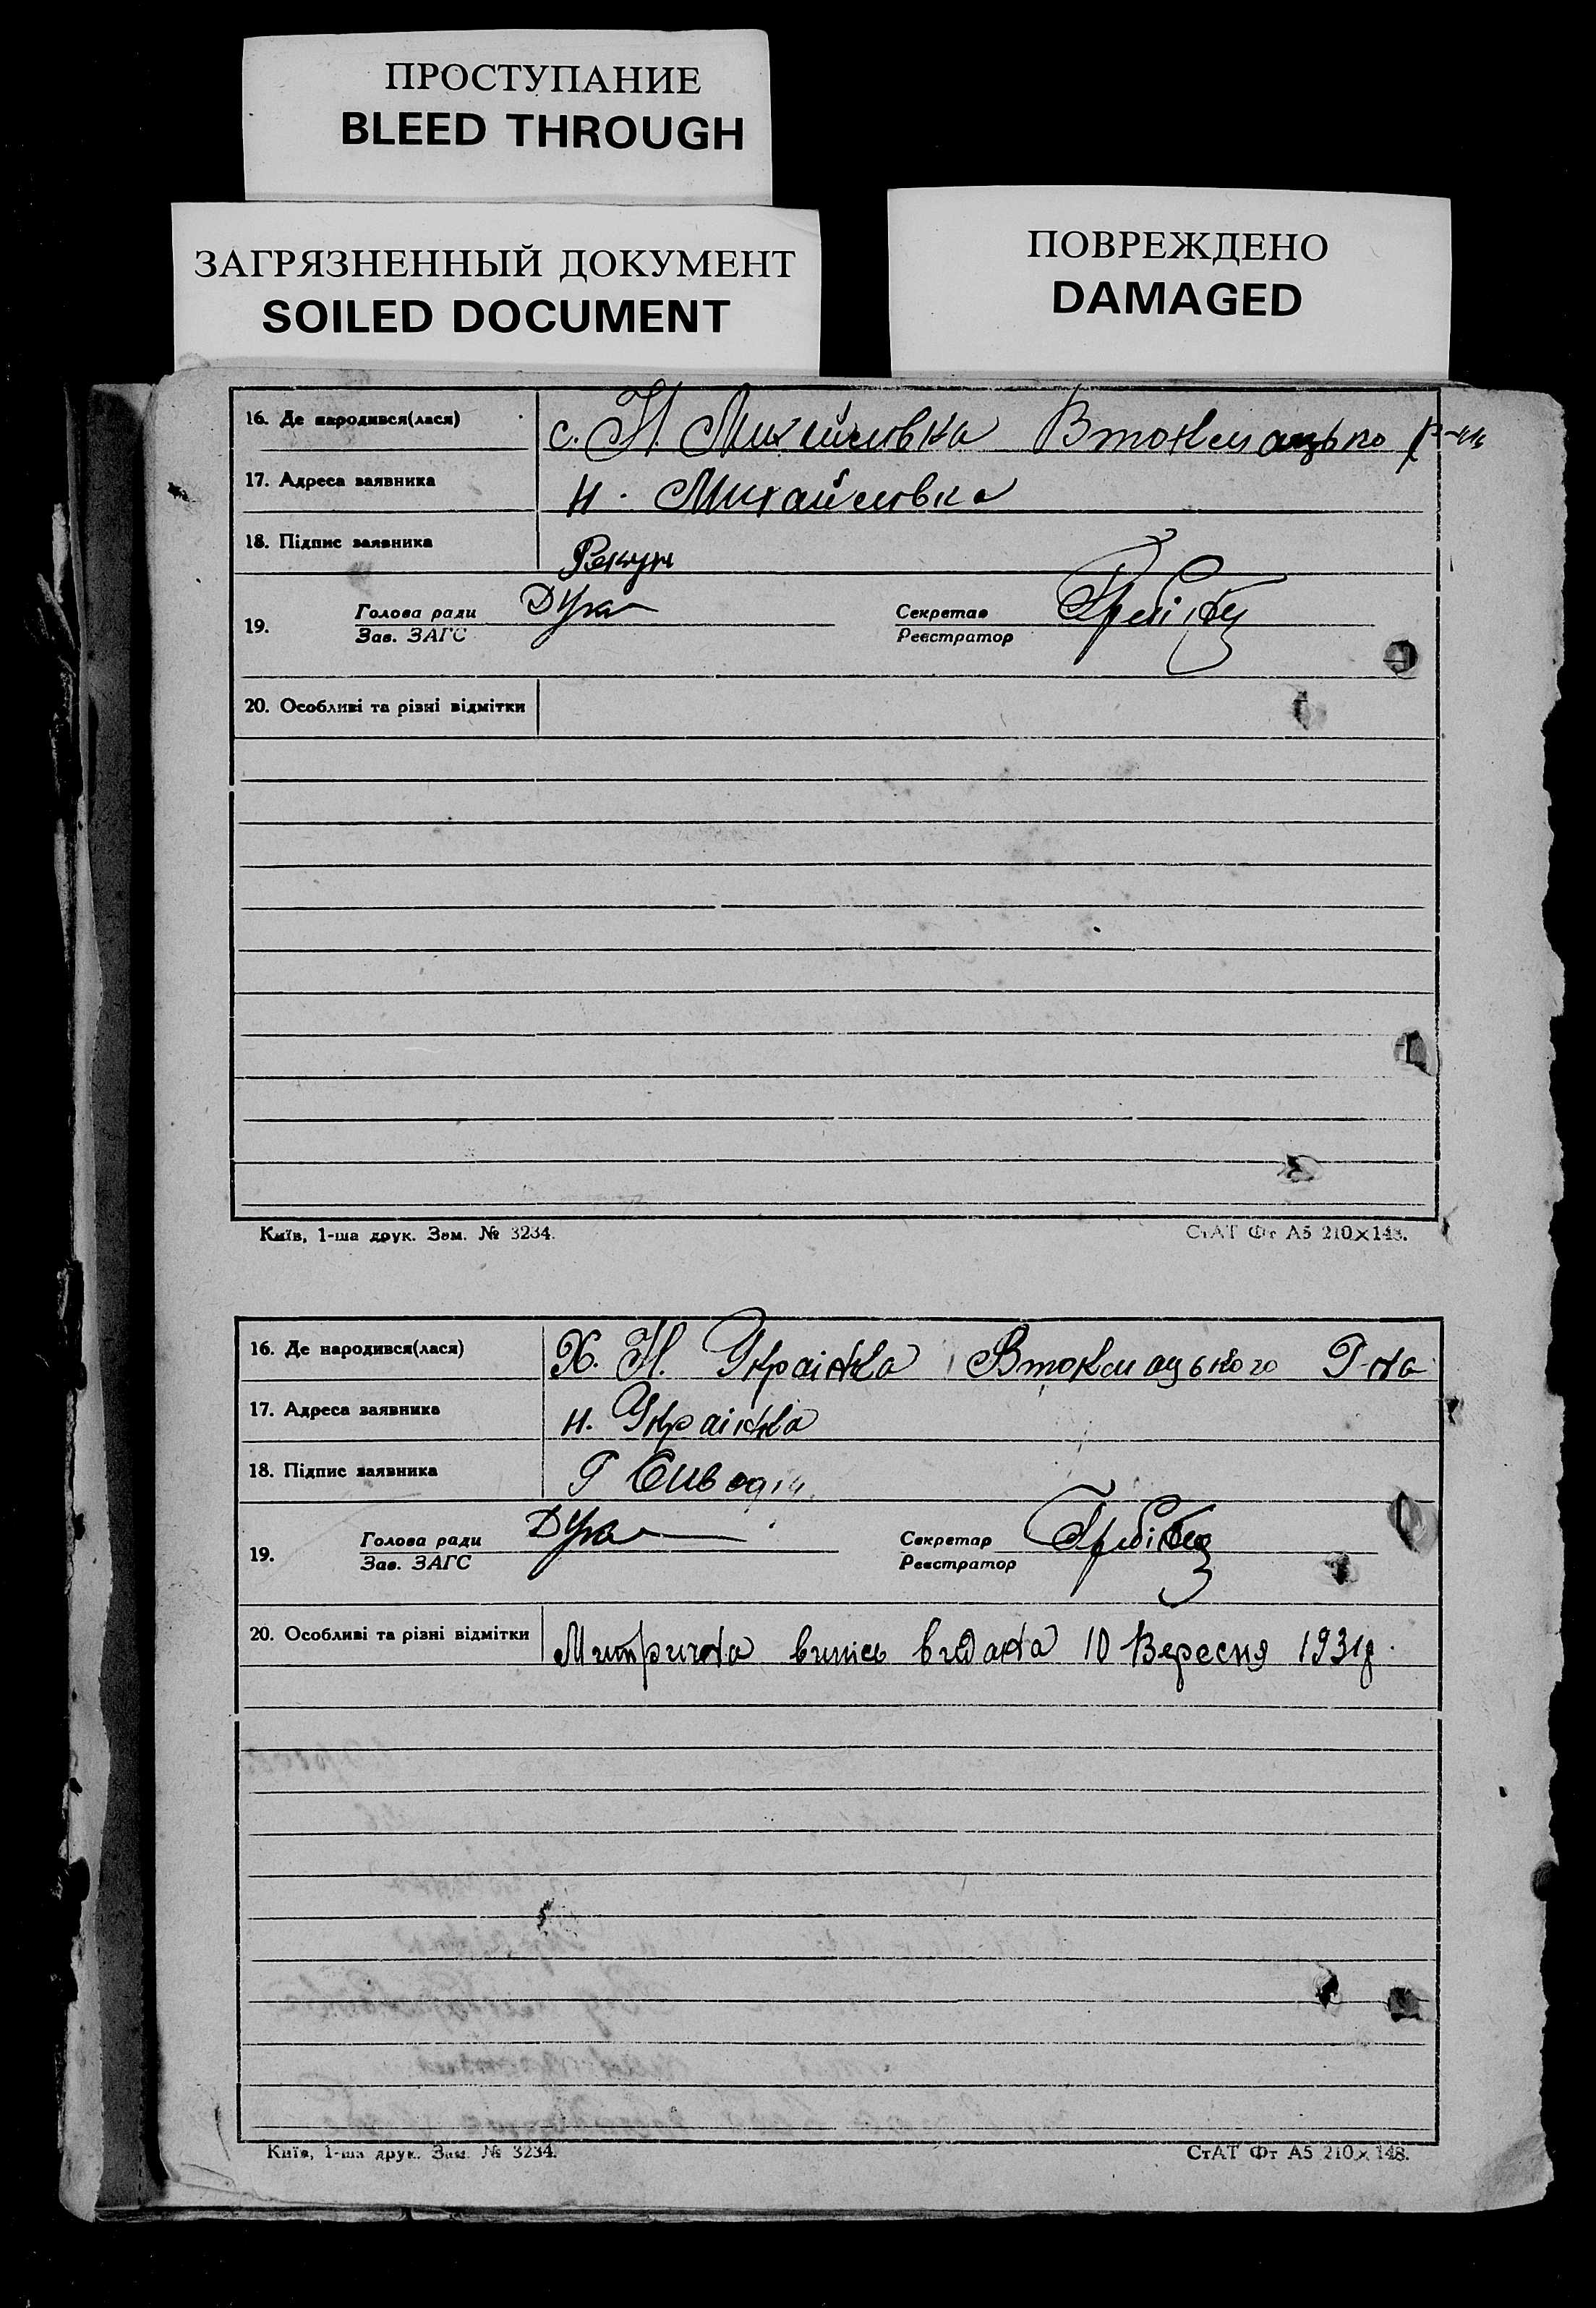 ПРОСТУПАНИЕ
BLEED THROUGH
ЗАГРЯЗНЕННЫЙ ДОКУМЕНТ
SOILED DOCUMENT
ПОВРЕЖДЕНО
DAMAGED
16. Де народився(лася) с. Н. Михайловка Втокмацько р-на
17. Адреса заявника Н. Михайловка
18. Підпис заявника
19. Голова ради Секретар
Зав. ЗАГС Реєстратор
20. Особливі та різні відмітки
Київ, 1-ша друк. Зам. № 3234. СтАТ Фт А5 210×148.
16. Де народився(лася) Х. Н. Украінка Втокмацького Р-на
17. Адреса заявника Н. Украінка
18. Підпис заявника Г
19. Голова ради Секретар
Зав. ЗАГС Реєстратор
20. Особливі та різні відмітки Митрична випісь видана 10 Вересня 1931р.
Київ, 1-ша друк. Зам. № 3234. СтАТ Фт А5 210×148.